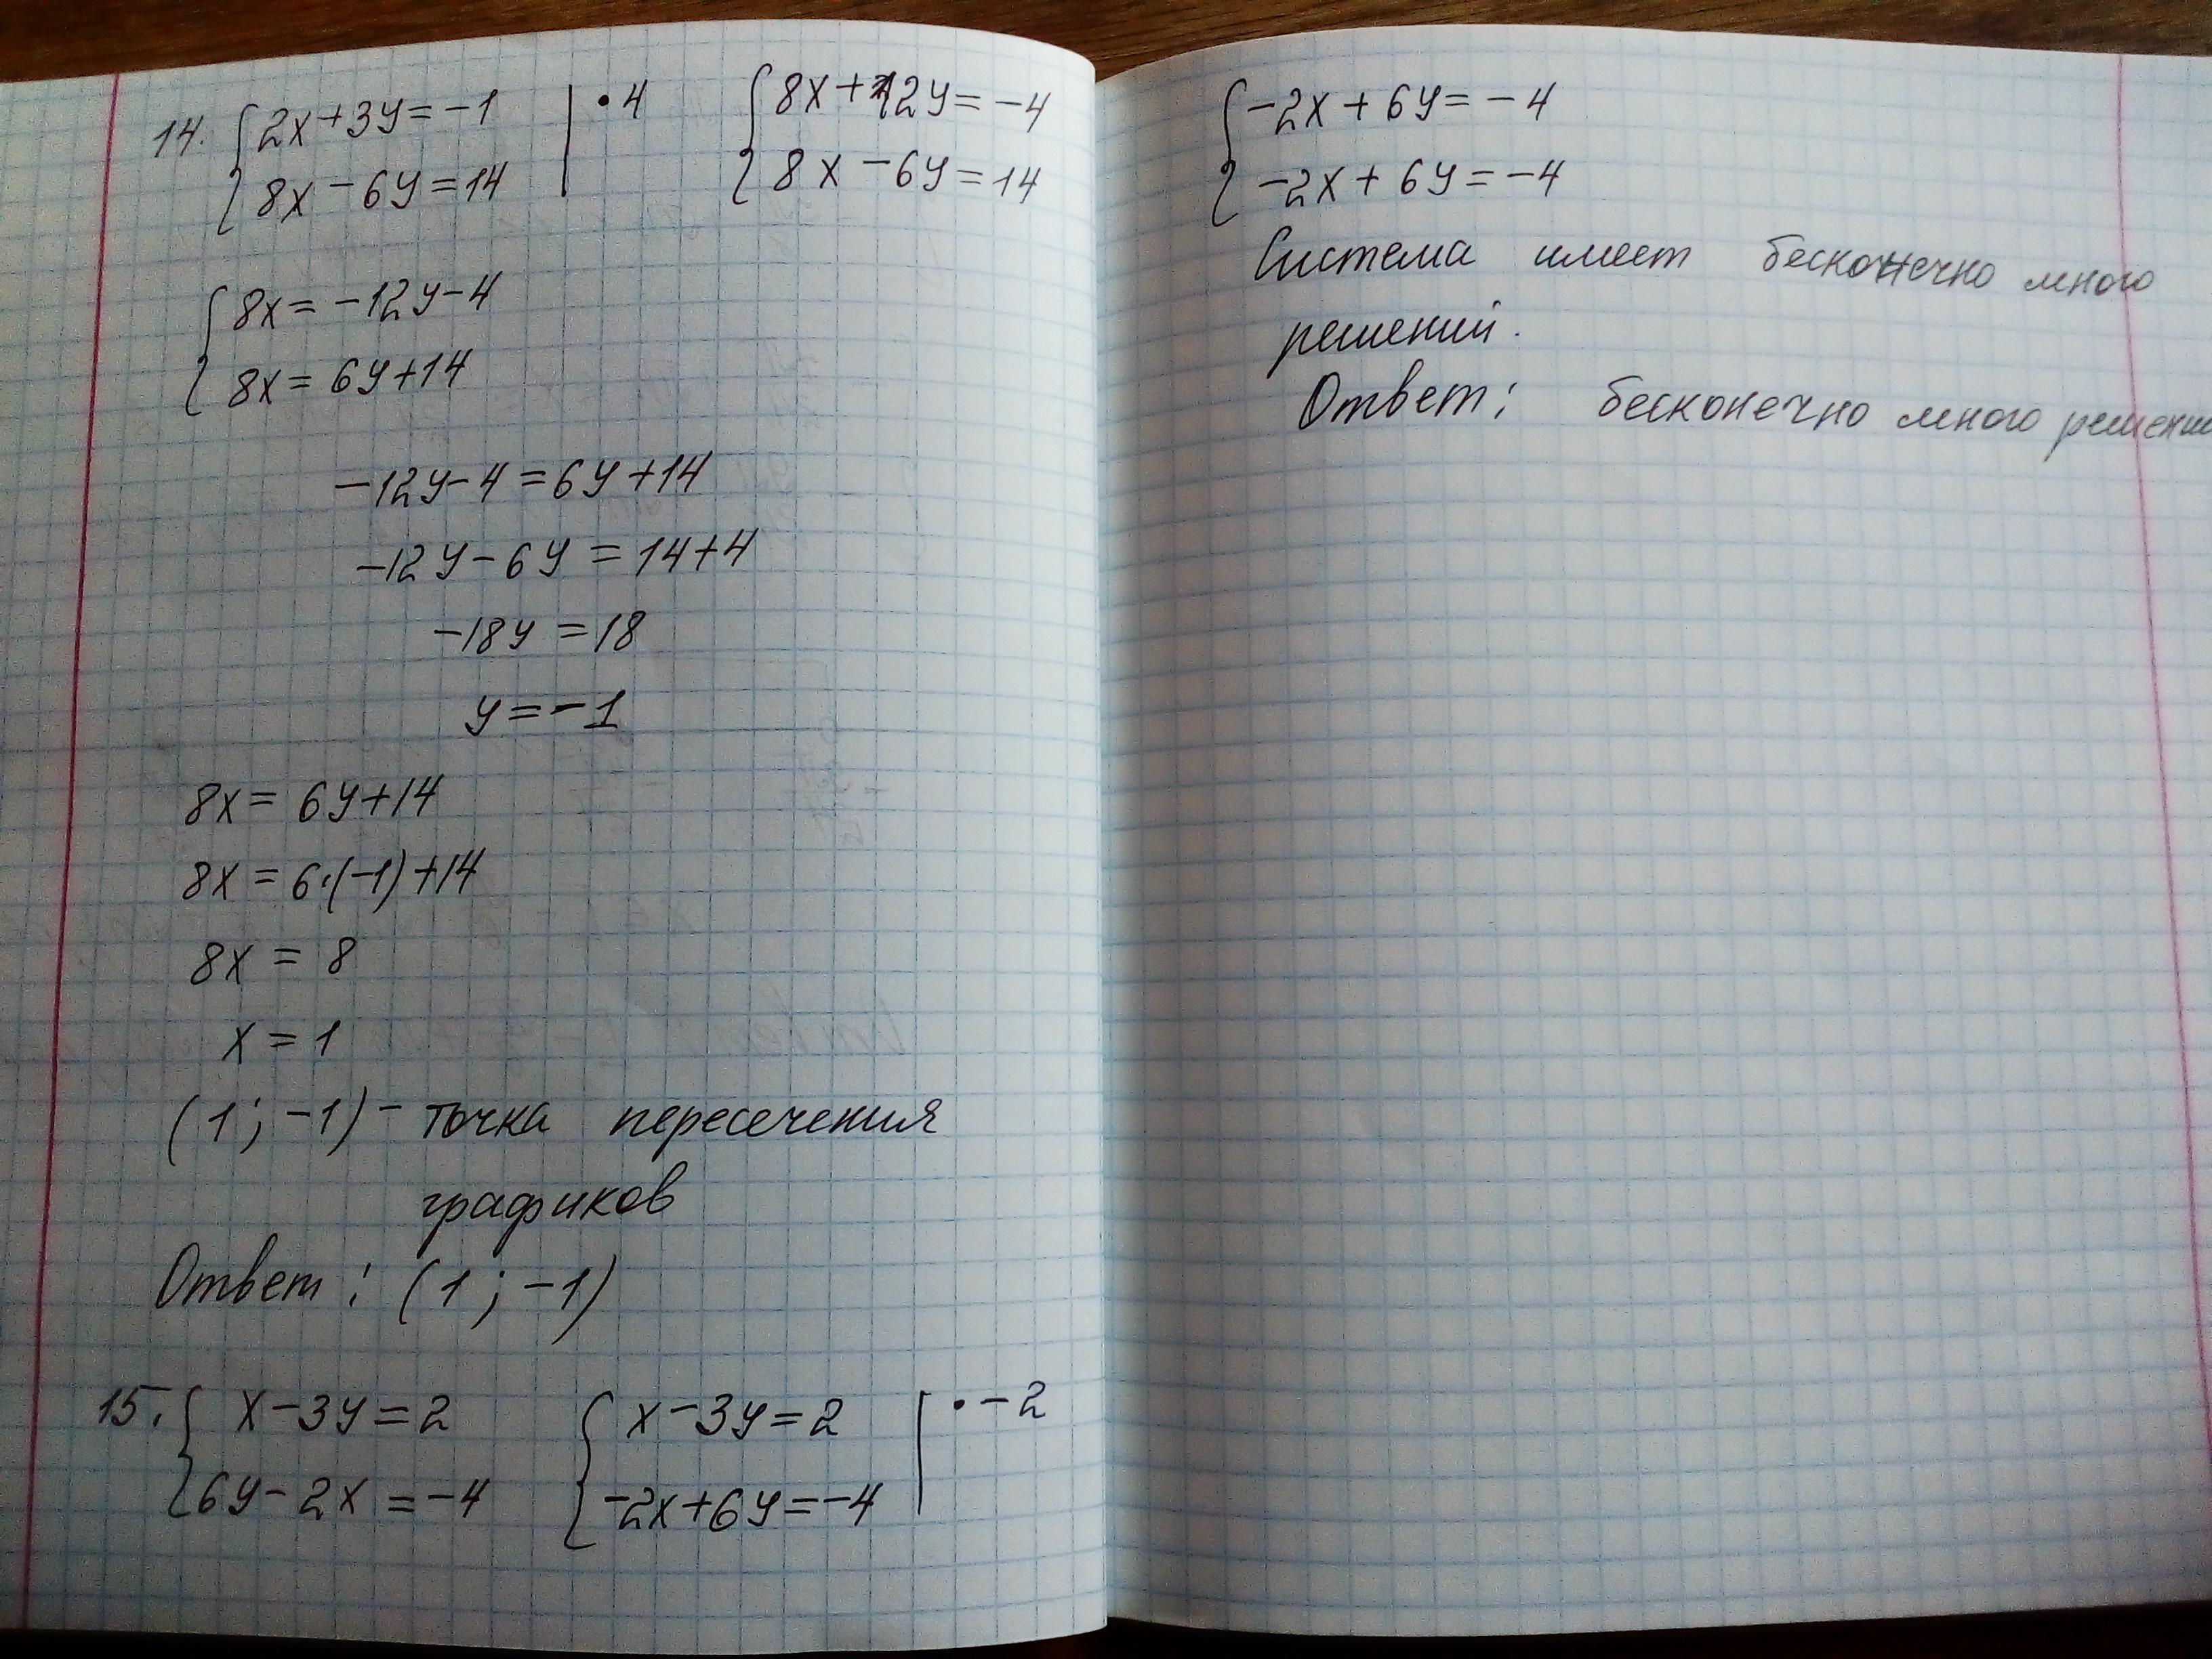 14. { 2x+3y=-1 | •4 { 8x+12y=-4
{ 8x-6y=14 | { 8x-6y=14
{ 8x=-12y-4
{ 8x=6y+14
-12y-4=6y+14
-12y-6y=14+4
-18y=18
y=-1
8x=6y+14
8x=6·(-1)+14
8x=8
x=1
(1; -1) - точка пересечения
графиков
Ответ: (1; -1)
15. { x-3y=2 { x-3y=2 | •-2
{ 6y-2x=-4 { -2x+6y=-4 |
{ -2x+6y=-4
{ -2x+6y=-4
Система имеет бесконечно много
решений.
Ответ: бесконечно много решени